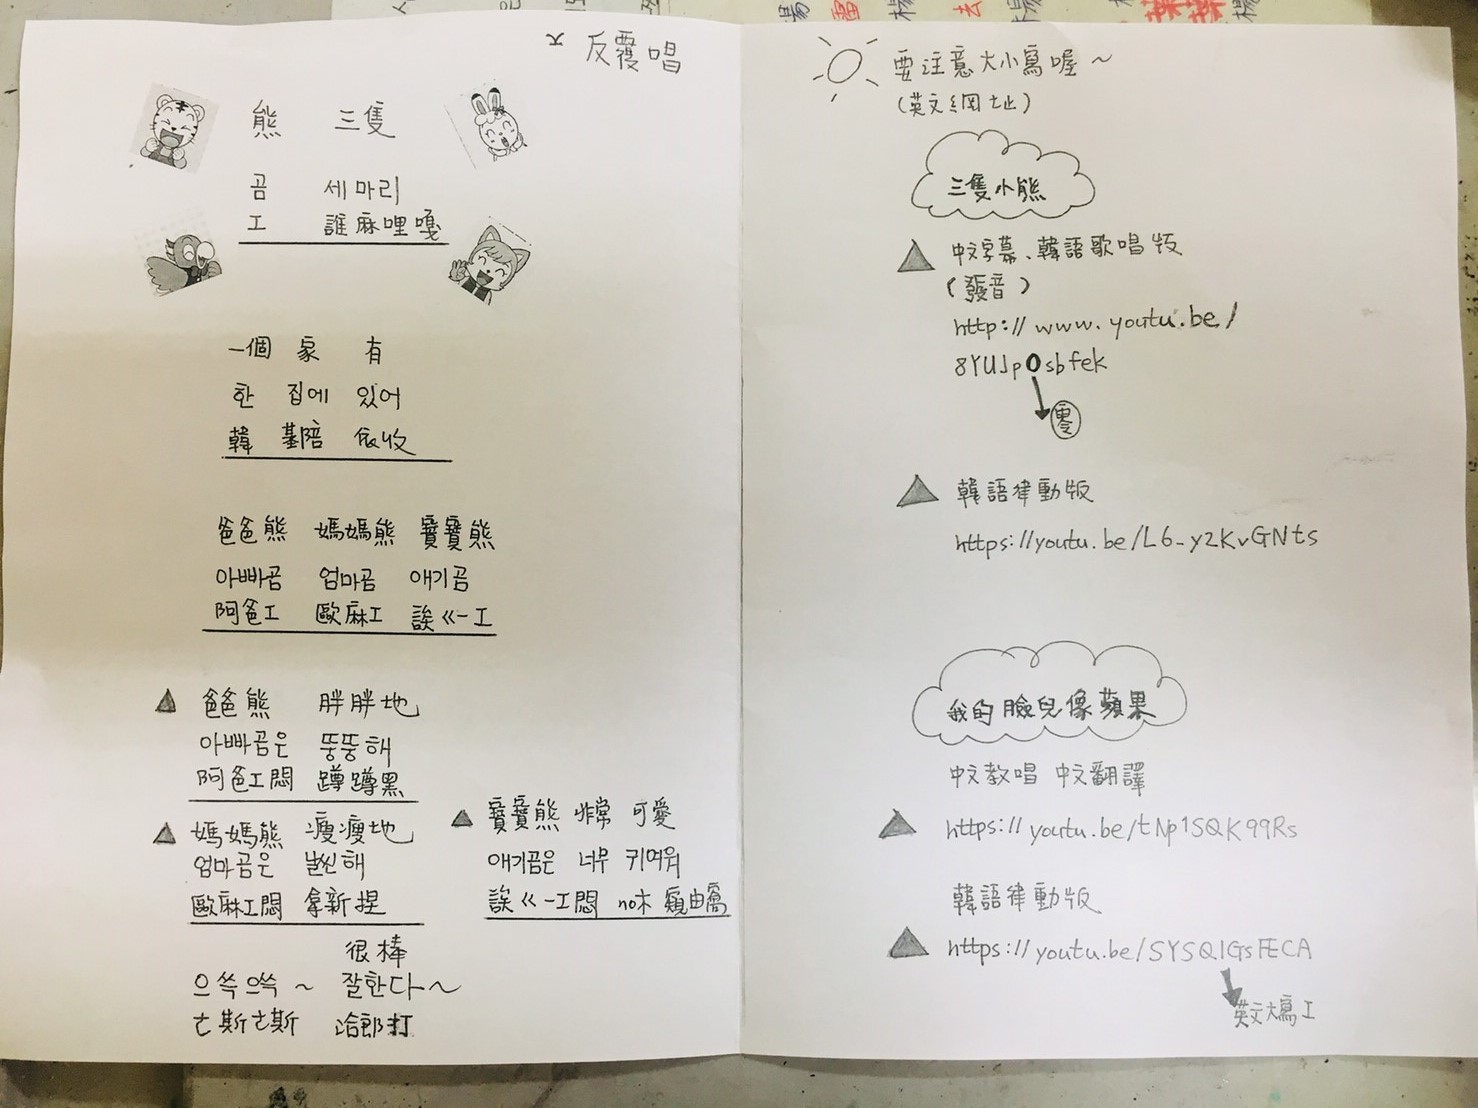 ㄡ 反覆唱
熊 三隻
곰 세마리
工 誰麻哩嘎
一個 家 有
한 집에 있어
韓 基陪
爸爸熊 媽媽熊 寶寶熊
아빠곰 엄마곰 애기곰
阿爸工 歐麻工 誒ㄍㄧ工
爸爸熊 胖胖地
아빠곰은 뚱뚱해
阿爸工悶 蹲蹲黑
媽媽熊 瘦瘦地
엄마곰은 날씬해
歐麻工悶 拿新捏
寶寶熊 非常 可愛
애기곰은 너무 귀여워
誒ㄍㄧ工悶 no木 窺由窩
很棒
으쓱으쓱~ 잘한다~
ㄜ斯ㄜ斯 洽郎打
要注意大小寫喔~
(英文網址)
三隻小熊
中文字幕、韓語歌唱版
(發音)
http://www.youtu.be/
8YUJp0sbfek
零
韓語律動版
https://youtu.be/L6_y2KvGNts
我的臉兒像蘋果
中文教唱 中文翻譯
https://youtu.be/tNp1SQK99Rs
韓語律動版
https://youtu.be/SYSQIGsFECA
英文大寫I